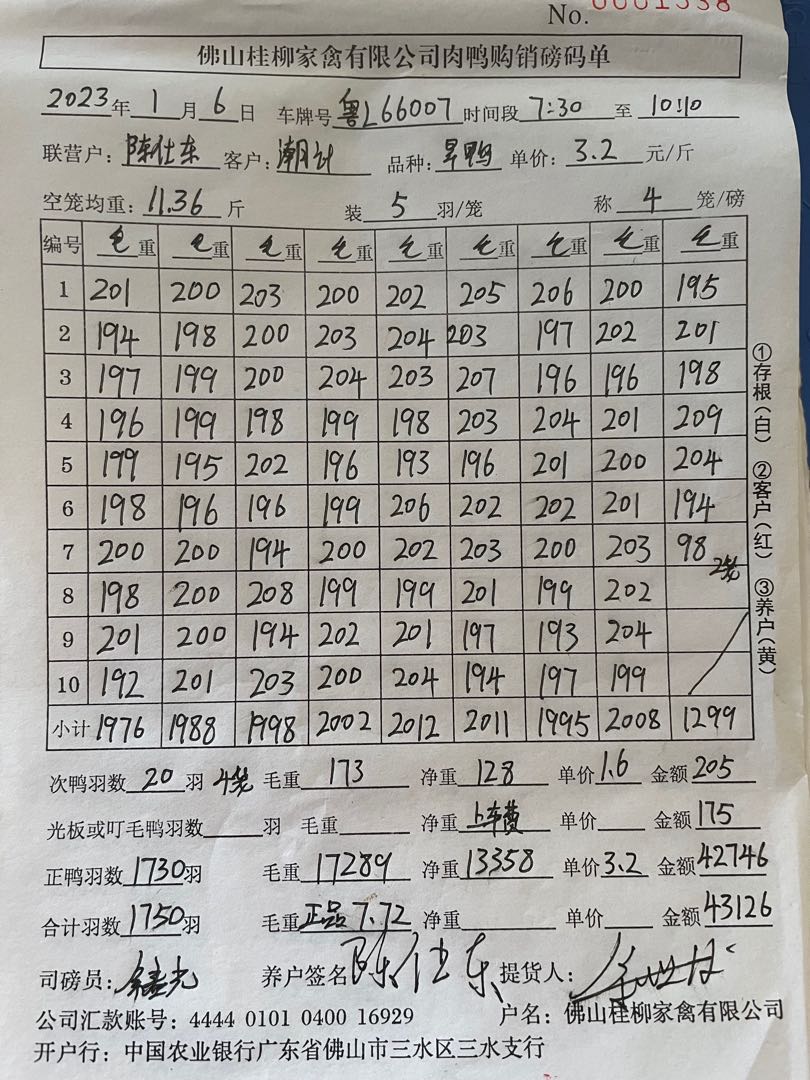 No. 0001538
佛山桂柳家禽有限公司肉鸭购销磅码单
2023年 1 月 6 日 车牌号 粤L66007 时间段 7:30 至 10:10
联营户: 陈仕东 客户: 潮计 品种: 旱鸭 单价: 3.2 元/斤
空笼均重: 11.36 斤 装 5 羽/笼 称 4 笼/磅
编号 毛重 毛重 毛重 毛重 毛重 毛重 毛重 毛重 毛重
1 201 200 203 200 202 205 206 200 195
2 194 198 200 203 204 203 197 202 201
3 197 199 200 204 203 207 196 196 198
4 196 199 198 199 198 203 204 201 209
5 199 195 202 196 193 196 201 200 204
6 198 196 196 199 206 202 202 201 194
7 200 200 194 200 202 203 200 203 98 2笼
8 198 200 208 199 199 201 199 202
9 201 200 194 202 201 197 193 204
10 192 201 203 200 204 194 197 199
小计 1976 1988 1998 2002 2012 2011 1995 2008 1299
①存根(白) ②客户(红) ③养户(黄)
次鸭羽数 20 羽 4笼 毛重 173 净重 128 单价 1.6 金额 205
光板或叮毛鸭羽数 羽 毛重 净重 上车费 单价 金额 175
正鸭羽数 1730 羽 毛重 17289 净重 13358 单价 3.2 金额 42746
合计羽数 1750 羽 毛重 正品 7.72 净重 单价 金额 43126
司磅员: 养户签名 陈仕东 提货人:
公司汇款账号: 4444 0101 0400 16929 户名: 佛山桂柳家禽有限公司
开户行: 中国农业银行广东省佛山市三水区三水支行